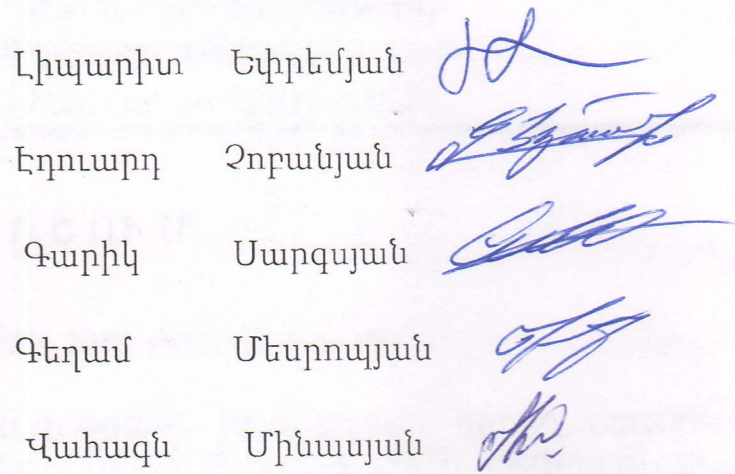 Լիպարիտ Եփրեմյան
Էդուարդ Չոբանյան
Գարիկ Սարգսյան
Գեղամ Մեսրոպյան
Վահագն Մինասյան